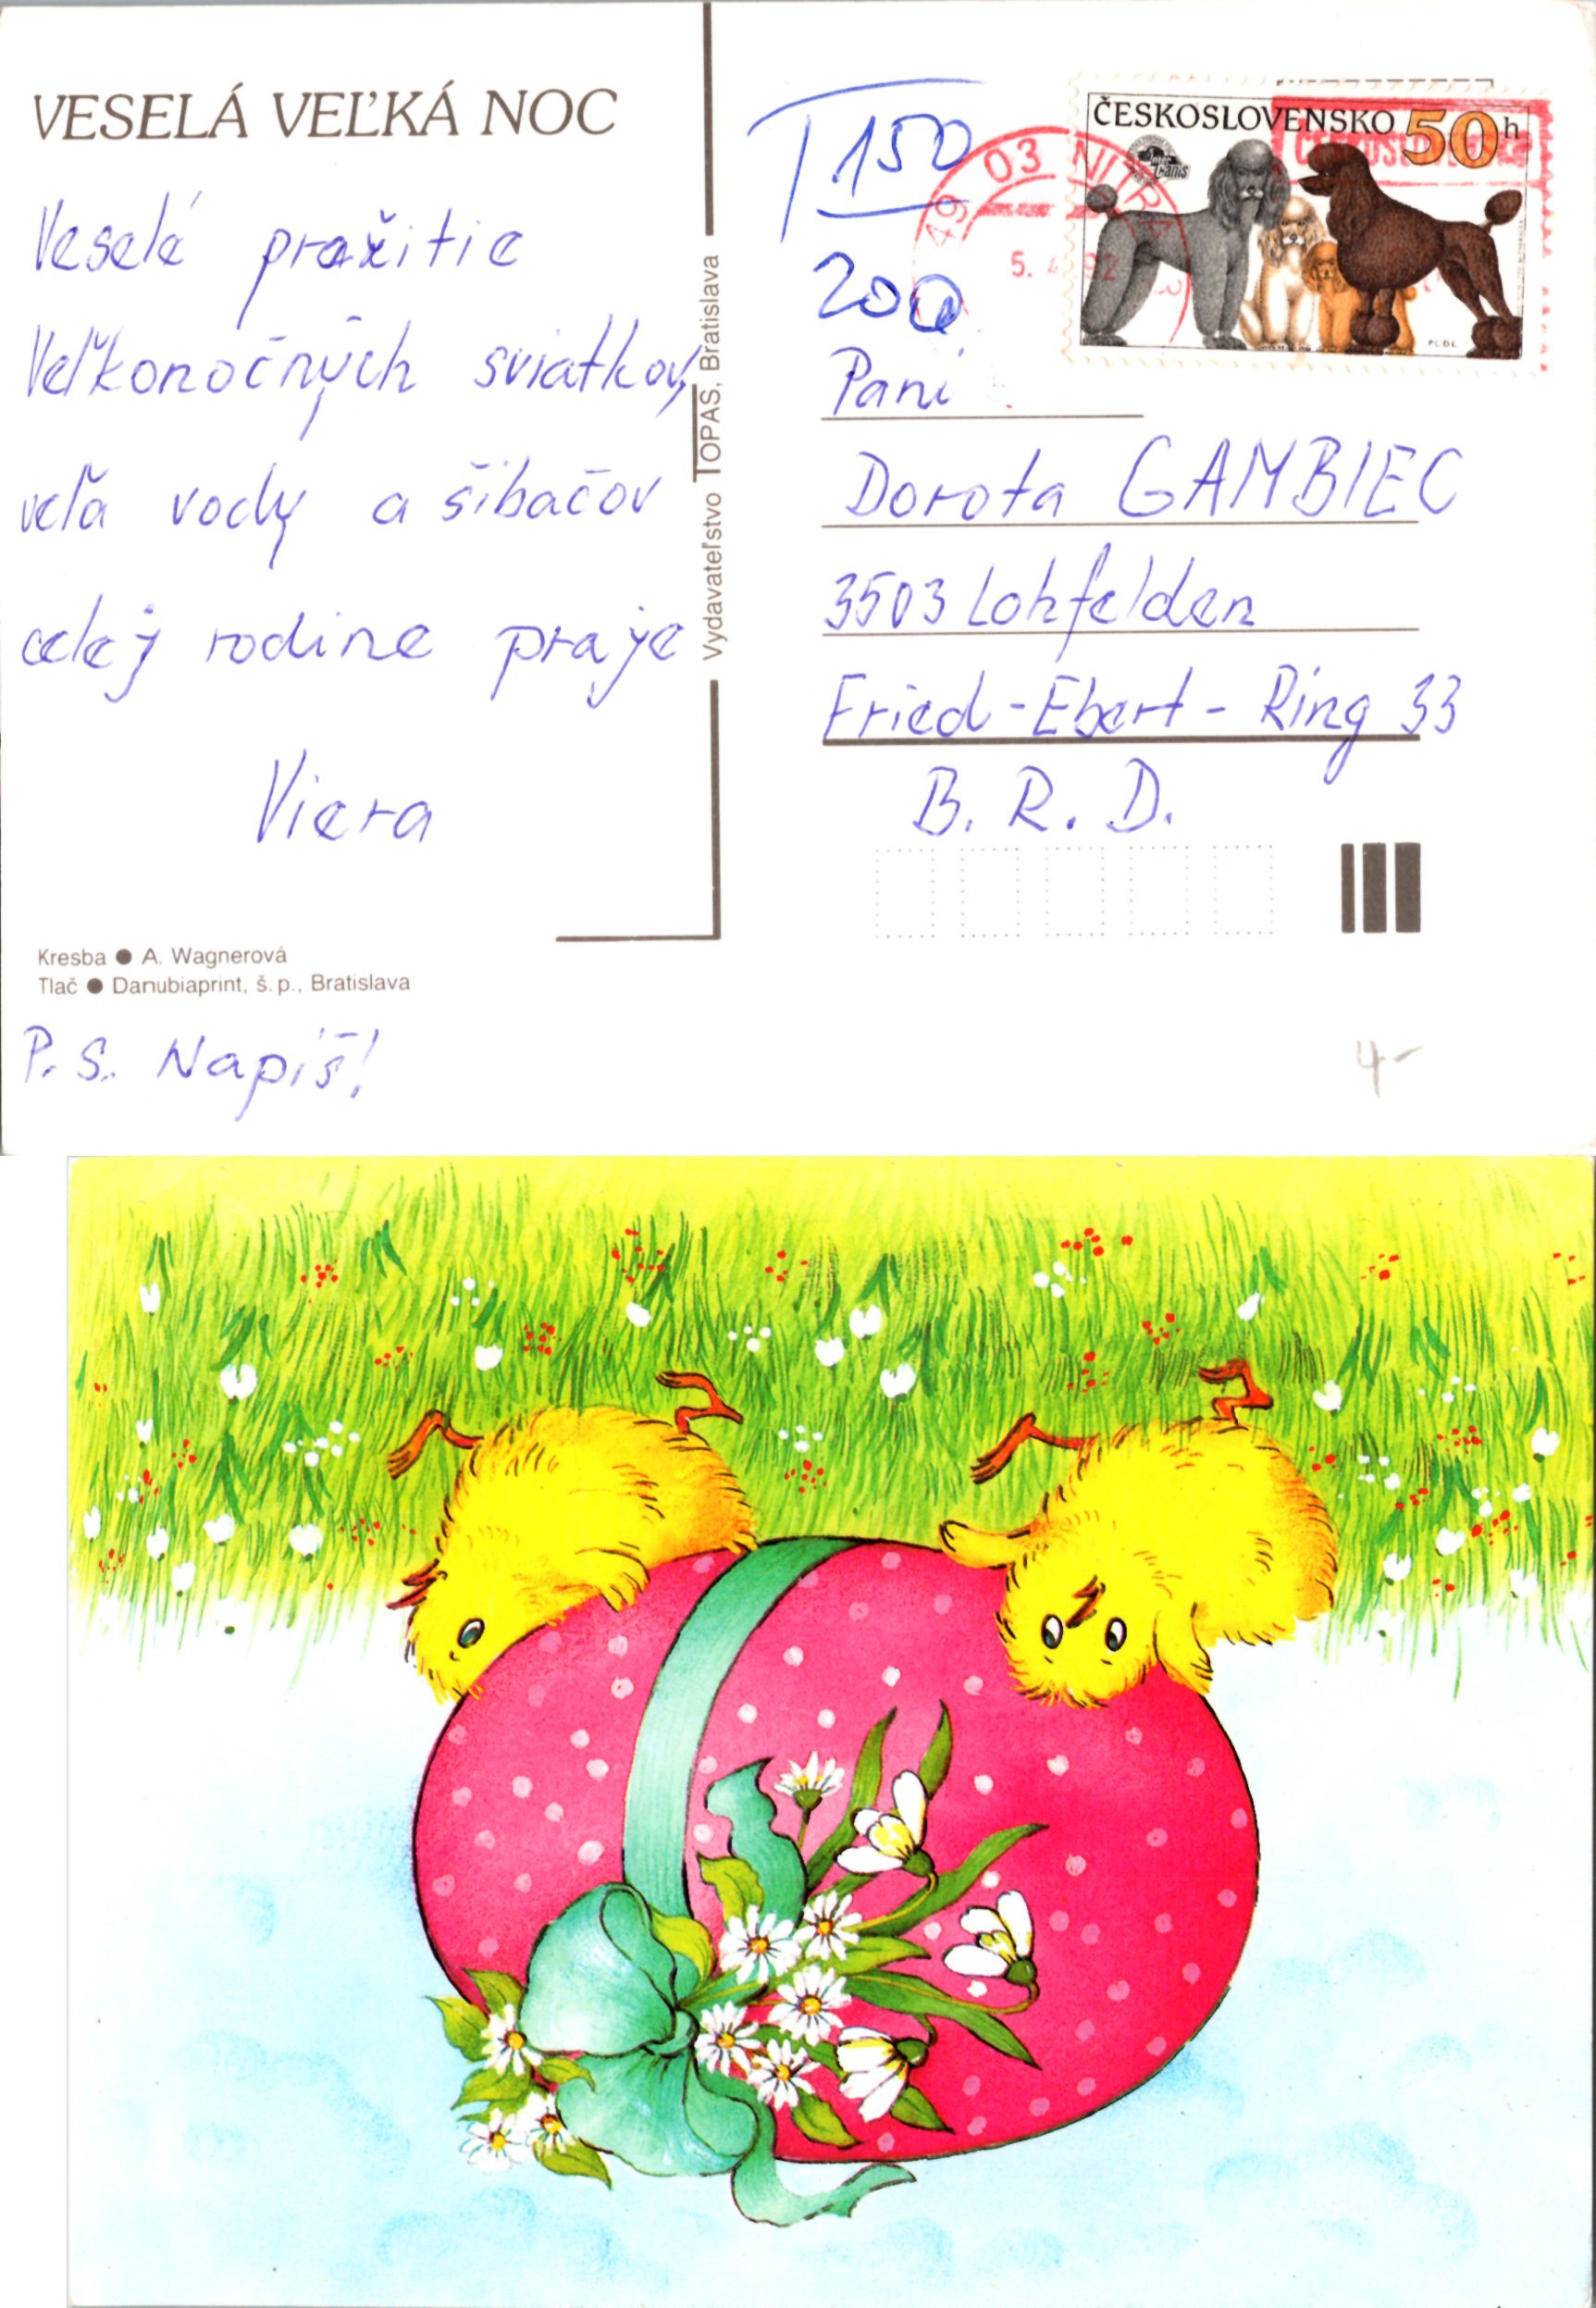 VESELÁ VEĽKÁ NOC
Veselé prežitie
Veľkonočných sviatkov,
veľa vody a šibačov
celej rodine praje
Viera
Kresba ● A. Wagnerová
Tlač ● Danubiaprint, š. p., Bratislava
P. S. Napíš!
Vydavateľstvo TOPAS, Bratislava
T 150
200
49 03 NITRA 3
5. 4. 92
ČESKOSLOVENSKO 50 h
Inter Canis
PUDL
Pani
Dorota GAMBIEC
3503 Lohfelden
Fried-Ebert-Ring 33
B. R. D.
4-